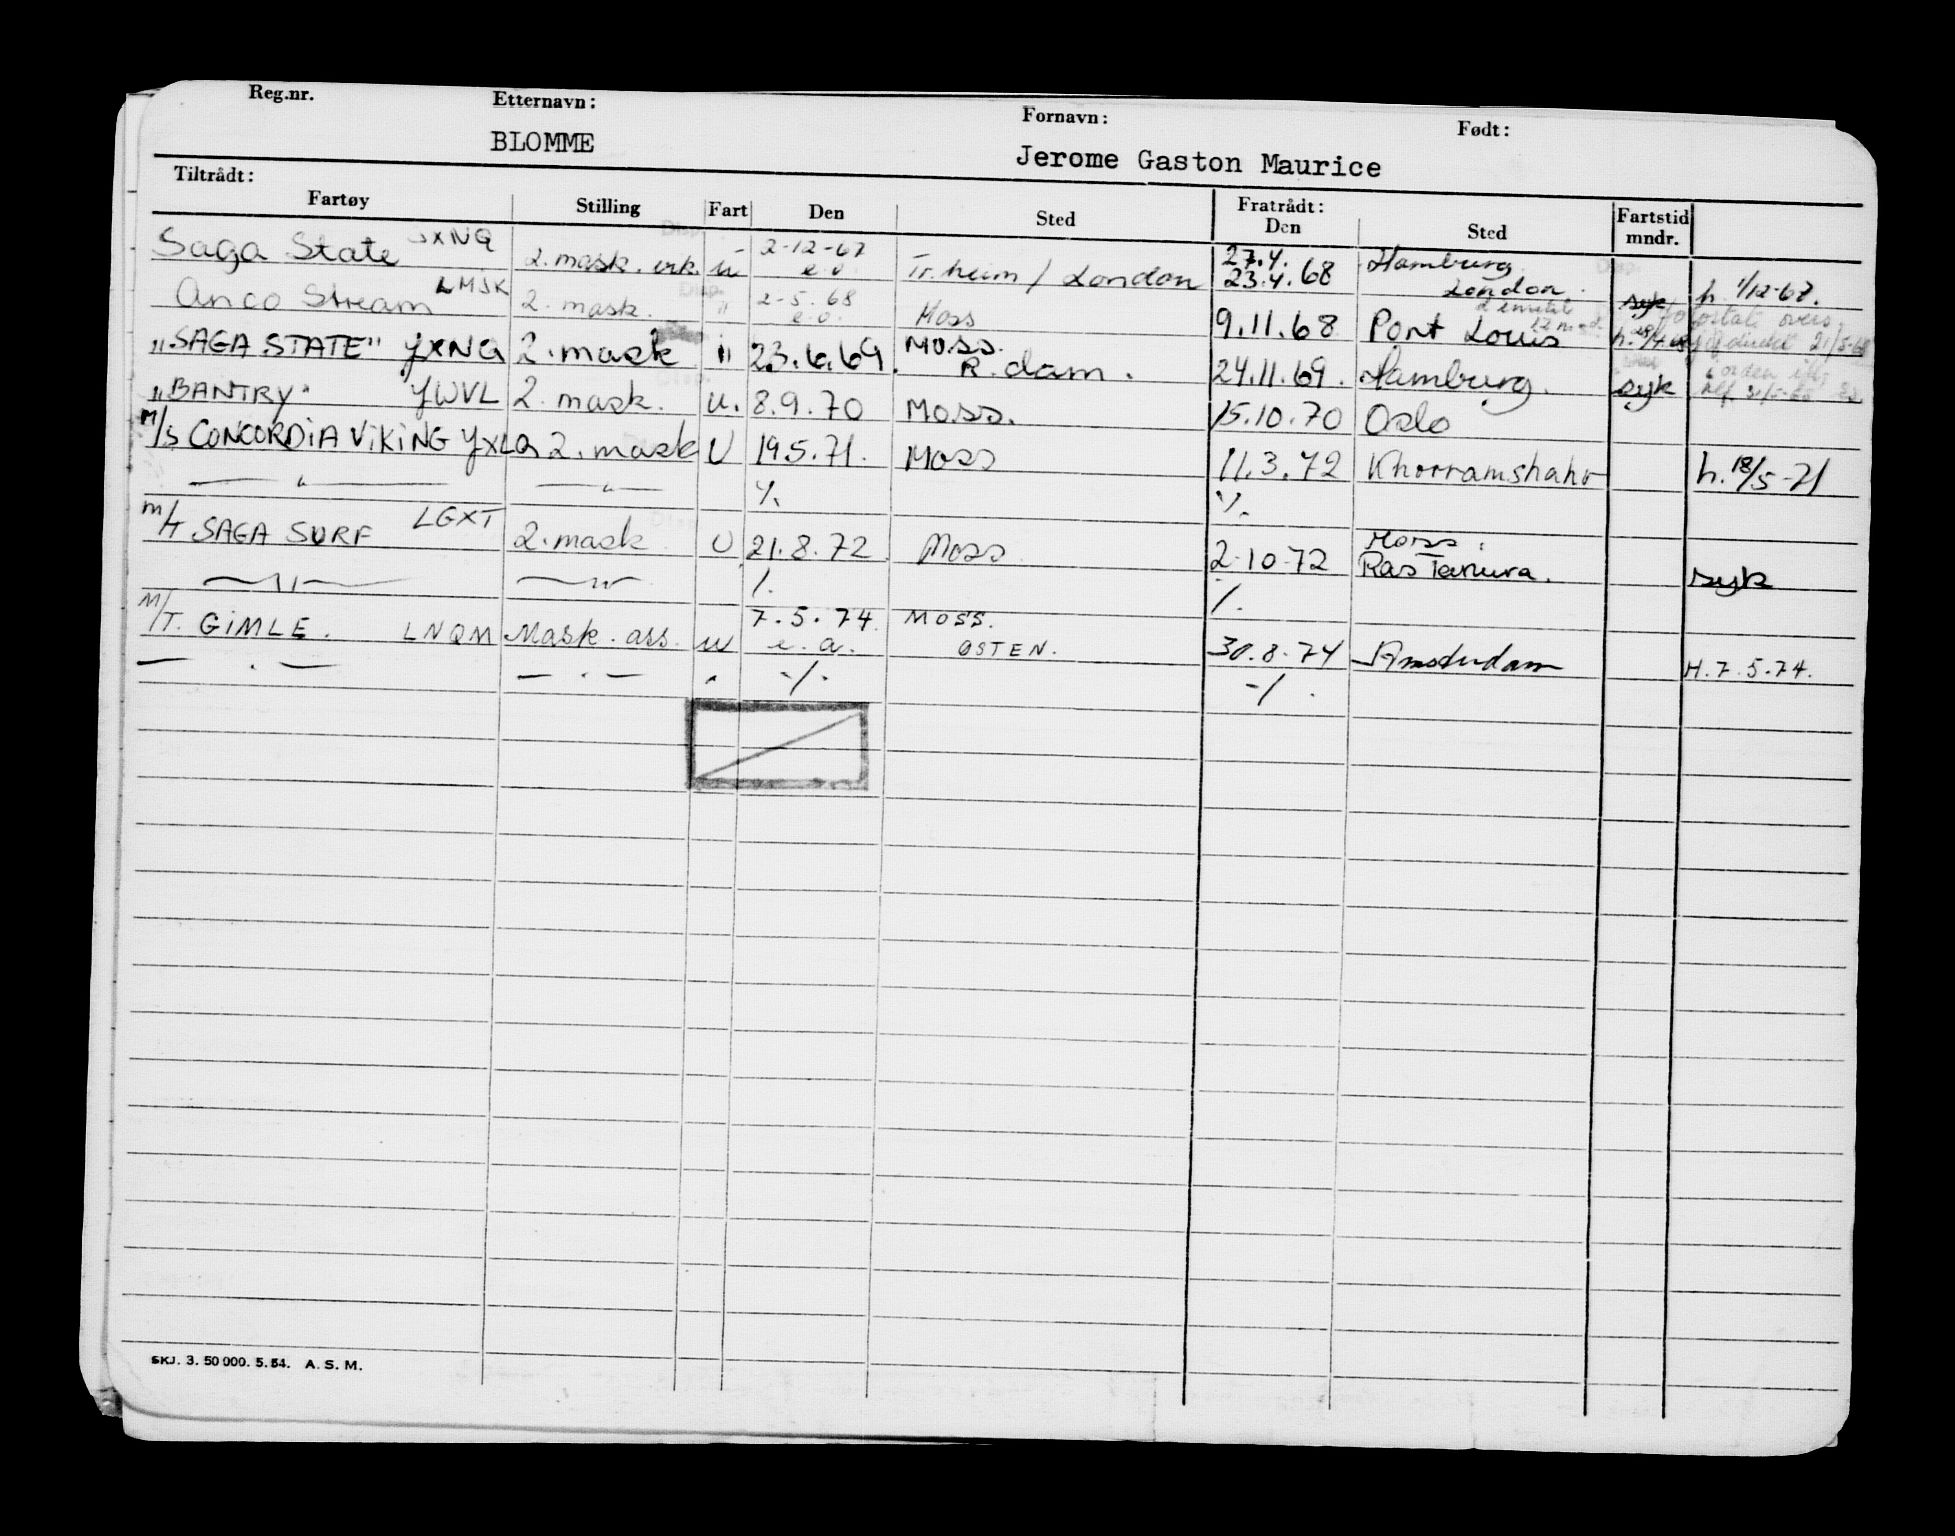 Reg.nr. Etternavn: Fornavn: Født:
BLOMME Jerome Gaston Maurice
Tiltrådt: Fratrådt:
Fartøy Stilling Fart Den Sted Den Sted Fartstid mndr.
JXNQ 2-12-67 27.4. Hamburg
Saga State 2. mask. erk. u e.o. Tr.heim / London 23.4.68 London. syk h. 1/12-67.
Anco Stream LMJK 2. mask. " 2-5.68 e.o. Moss 9.11.68 Port Louis
"SAGA STATE" JXNQ 2. mask " 23.6.69. MOSS. R.dam. 24.11.69. Hamburg. syk
"BANTRY" JWVL 2. mask. u. 8.9.70 Moss. 15.10.70 Oslo
M/S CONCORDIA ViKiNG JXLQ 2. mask U 19.5.71. Moss 11.3.72 Khorramshahr h. 18/5-71
— " — — " — ./. ./.
M/T SAGA SURF LGXT 2. mask U 21.8.72 Moss 2-10-72 Moss: Ras Tanura. syk
— " — — " — ./. ./.
M/T. GiMLE. LNQM Mask. ass. u 7.5.74. e.a. MOSS. ØSTEN. 30.8.74 Amsterdam H.7.5.74.
— . — — . — . -/. -/.
SKJ. 3. 50 000. 5. 54. A. S. M.